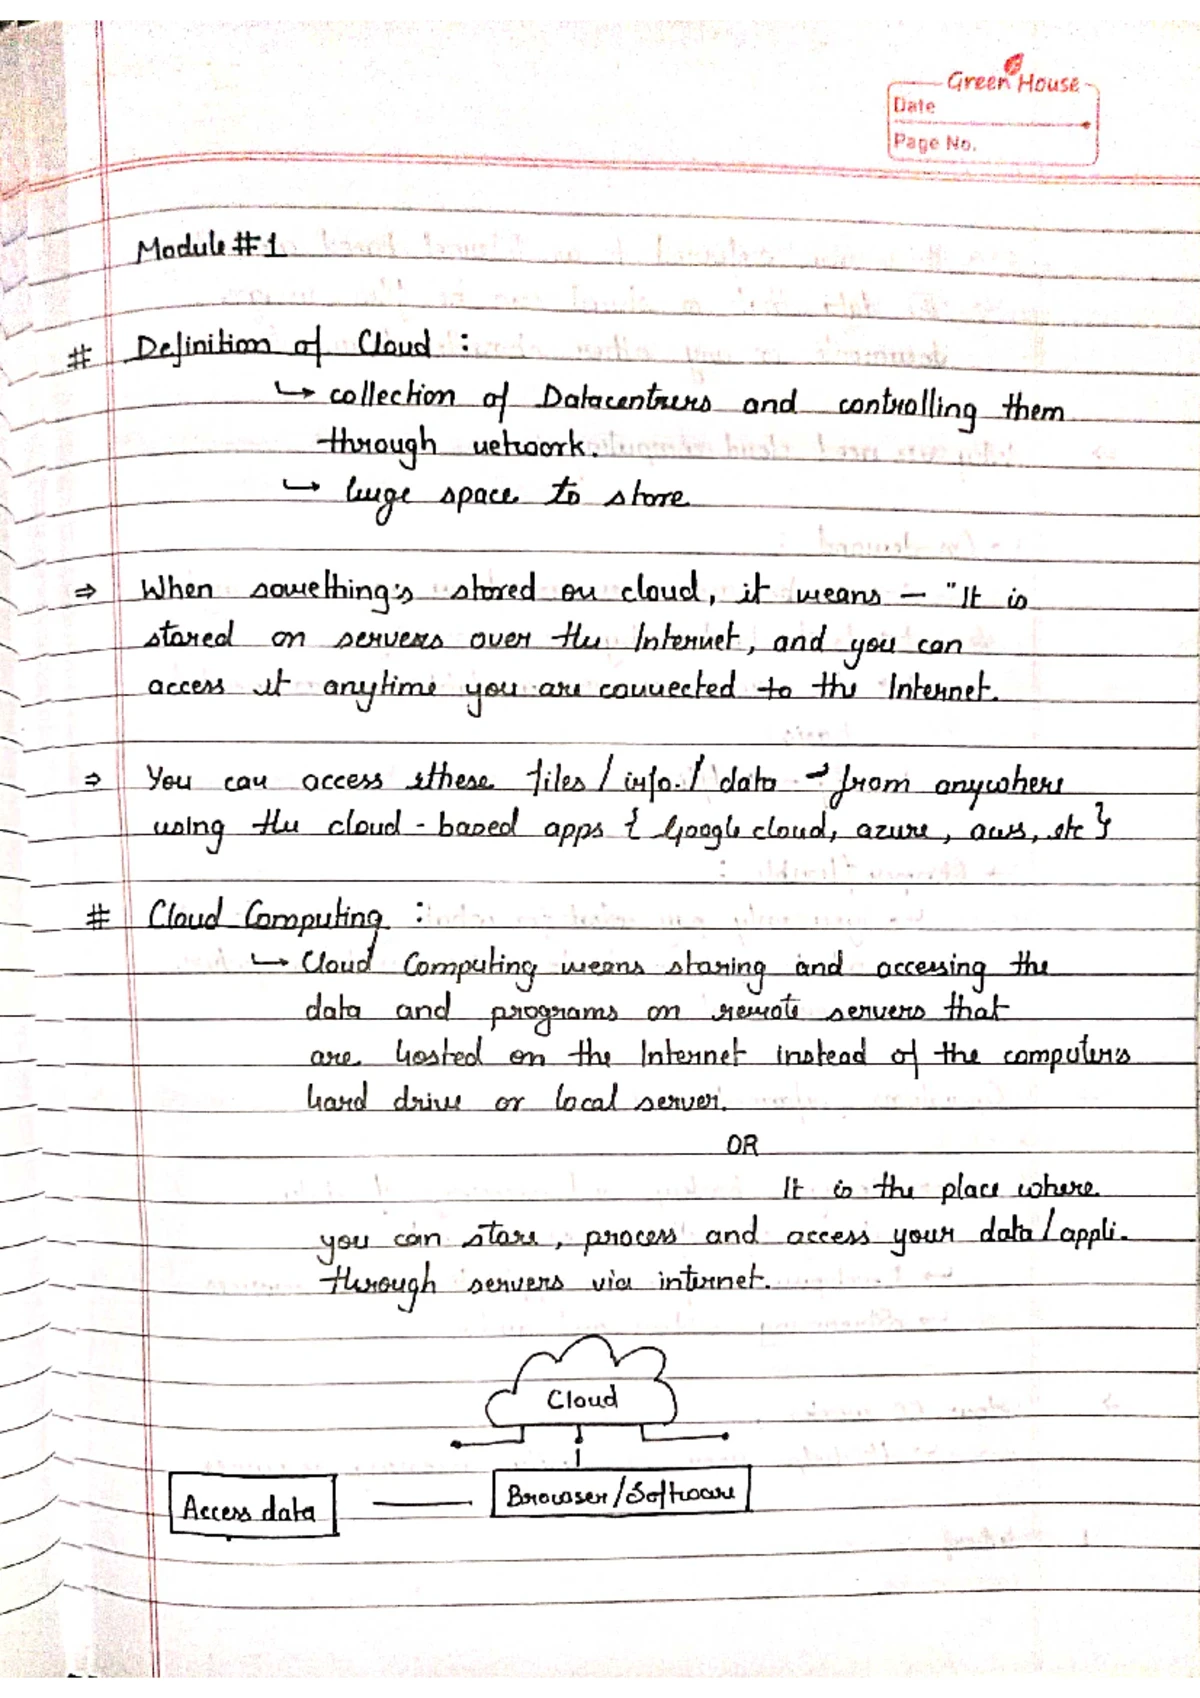 Green House
Date
Page No.
Module #1
# Definition of Cloud :
↳ collection of Datacentrers and controlling them
through network.
↳ huge space to store
⇒ When something's stored on cloud, it means — "It is
stored on servers over the Internet, and you can
access it anytime you are connected to the Internet.
⇒ You can access these files / info. / data → from anywhere
using the cloud - based apps { Google cloud, azure, aws, etc }
# Cloud Computing :
↳ Cloud Computing means storing and accessing the
data and programs on remote servers that
are hosted on the Internet instead of the computer's
hard drive or local server.
OR
It is the place where
you can store, process and access your data / appli.
through servers via internet.
Cloud
Access data — Browser / Software